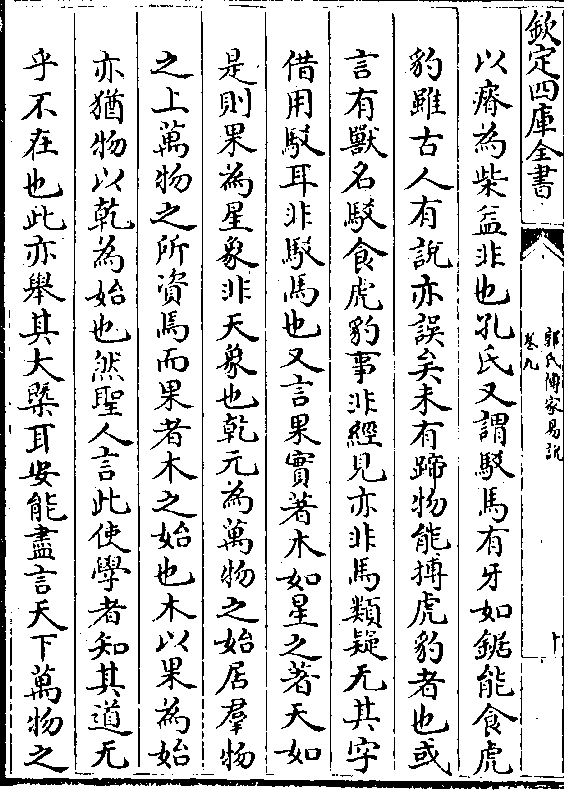 欽定四庫全書
郭氏傳家易說
卷九
十
以瘠為柴益非也孔氏又謂駁馬有牙如鋸能食虎
豹雖古人有說亦誤矣未有蹄物能搏虎豹者也或
言有獸名駁食虎豹事非經見亦非馬類疑无其字
借用駁耳非駁馬也又言果實著木如星之著天如
是則果為星象非天象也乾元為萬物之始居羣物
之上萬物之所資焉而果者木之始也木以果為始
亦猶物以乾為始也然聖人言此使學者知其道无
乎不在也此亦舉其大槩耳安能盡言天下萬物之